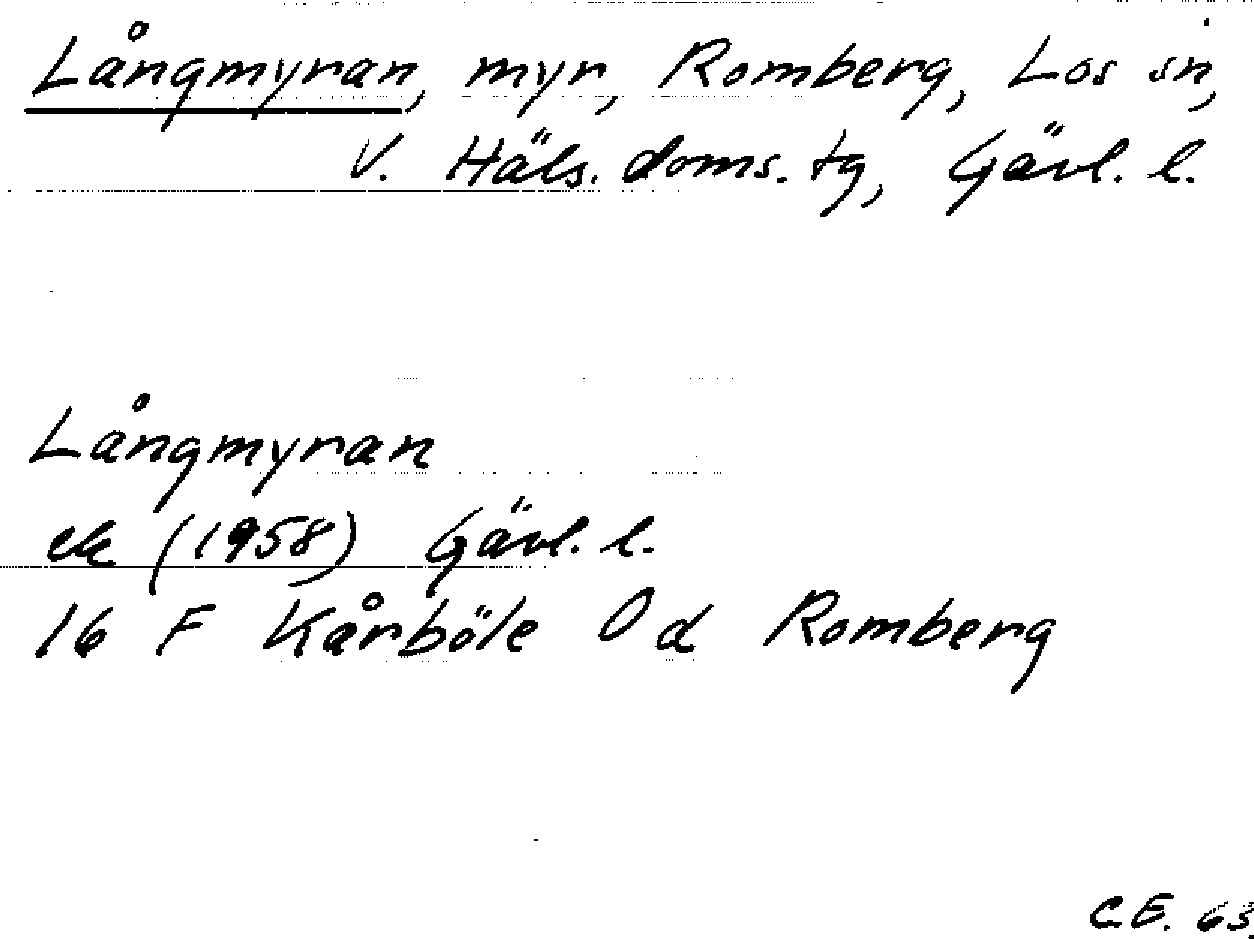 Långmyran, myr, Romberg, Los sn,
V. Häls. doms. tg, Gävl. l.
Långmyran
ek (1958) Gävl. l.
16 F Kårböle 0 d Romberg
C.E. 63.